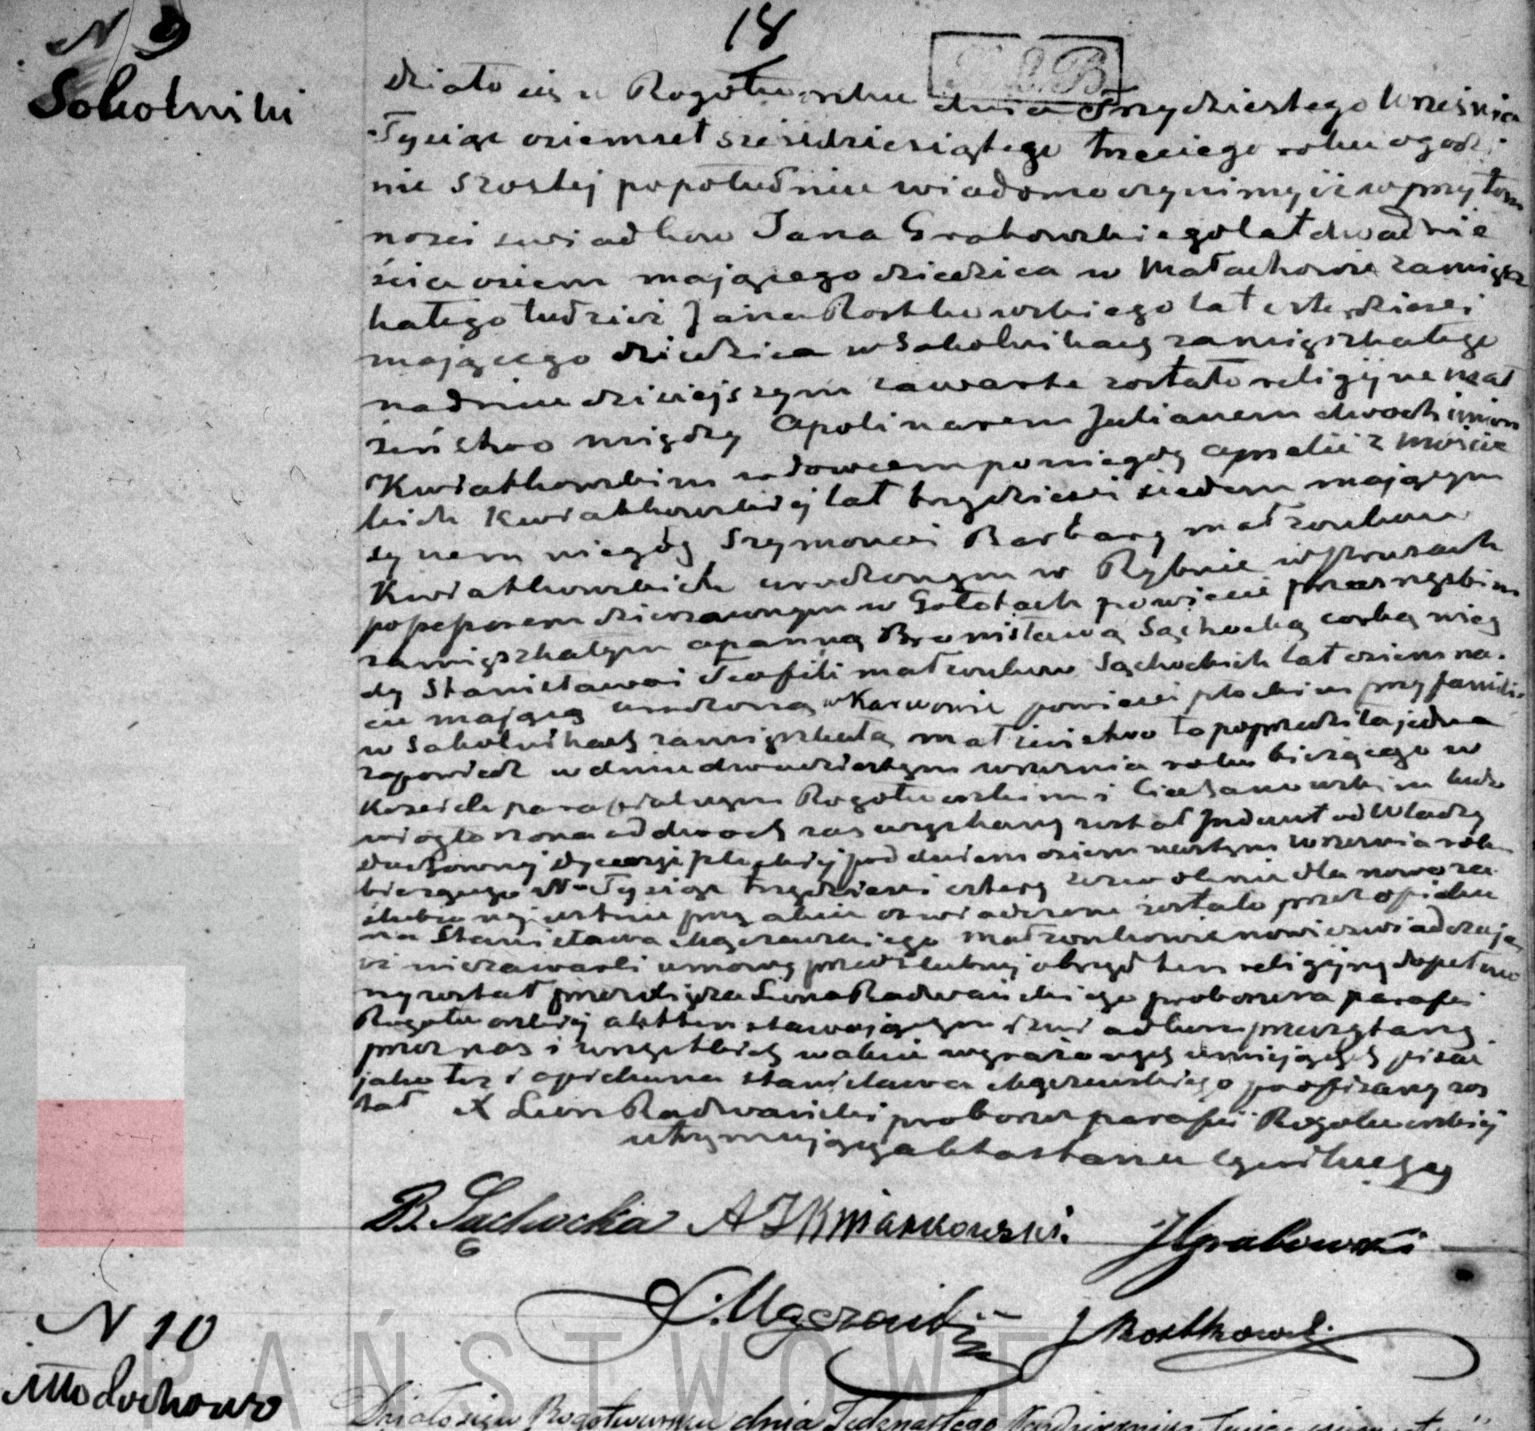 N 9
Sokolniki
18
P.L.B
Działo się w Rogotworsku dnia Trzydziestego Wrzesnia
Tysiąc ośiemset sześćdziesiątego trzeciego roku o godzi
nie szostej popołudniu wiadomo czynimy iż w przytom
nosci swiadkow Jana Grabowskiego lat dwadzie
ścia osiem mającego dziedzica w Małachowie zamiesz
kałego tudzież Jana Rostkowskiego lat czterdzieści
mającego dziedzica w Sokolnikach zamięszkałego
na dniu dzisiejszym zawarte zostało religijne mał
żeństwo między Apolinarem Julianem dwoch imion
Kwiatkowskim wdowcem po niegdy Amelii z
kich Kwiatkowskiej lat trzydzieści siedem mającym
synem niegdy Szymona i Barbary małżonkow
Kwiatkowskich urodzonym w Rybnie w Prusach
possesorem dzierzawnym w Gołotach powiecie przasnyskim
zamięszkałym a panną Bronisławą Sąchocką corką nieg
dy Stanisława i Teofili małzonkow Sąchockich lat osiemna
cie mającą urodzoną w Karwowie powiecie płockim przy familii
w Sokolnikach zamięszkałą małżeństwo to poprzedziła jedna
zapowiedz w dniu dwudziestym wrzesnia roku bieżącego w
Kosciele parafialnym Rogotworskim i Ciechanowskim
ogłoszona od dwoch zas wyzkany został Indult od Władzy
Duchownej Dyecezji Płockiej pod dniem osiemnastym wrzesnia roku
bieżącego No Tysiąc trzydzieści cztery zezwolenie dla nowoza
ślubionej ustnie przy akcie oswiadczone zostało przez opieku
na Stanisława Mączewskiego małzonkowie nowi oswiadczają
iż niezawarli umowy przedślubnej obrzęd ten religijny dopełnio
ny został przez Xiędza Leona Radwańskiego proboszcza parafii
Rogotworskiej akt ten stawającym i swiadkom przeczytany
przez nas i wszystkich w akcie wyrażonych umiejących pisać
jako też i opiekuna Stanisława Mączewskiego podpisany zos
tał X Leon Radwański proboszcz parafii Rogotworskiej
utrzymujący akta stanu cywilnego
B. Sąchocka A J Kwiatkowski. J Grabowski
S. Mączewski J Rostkowski
N 10
Małochowo
PAŃSTWOWE
Działo się w Rogotworsku dnia Jedenastego Pazdziernika Tysiąc